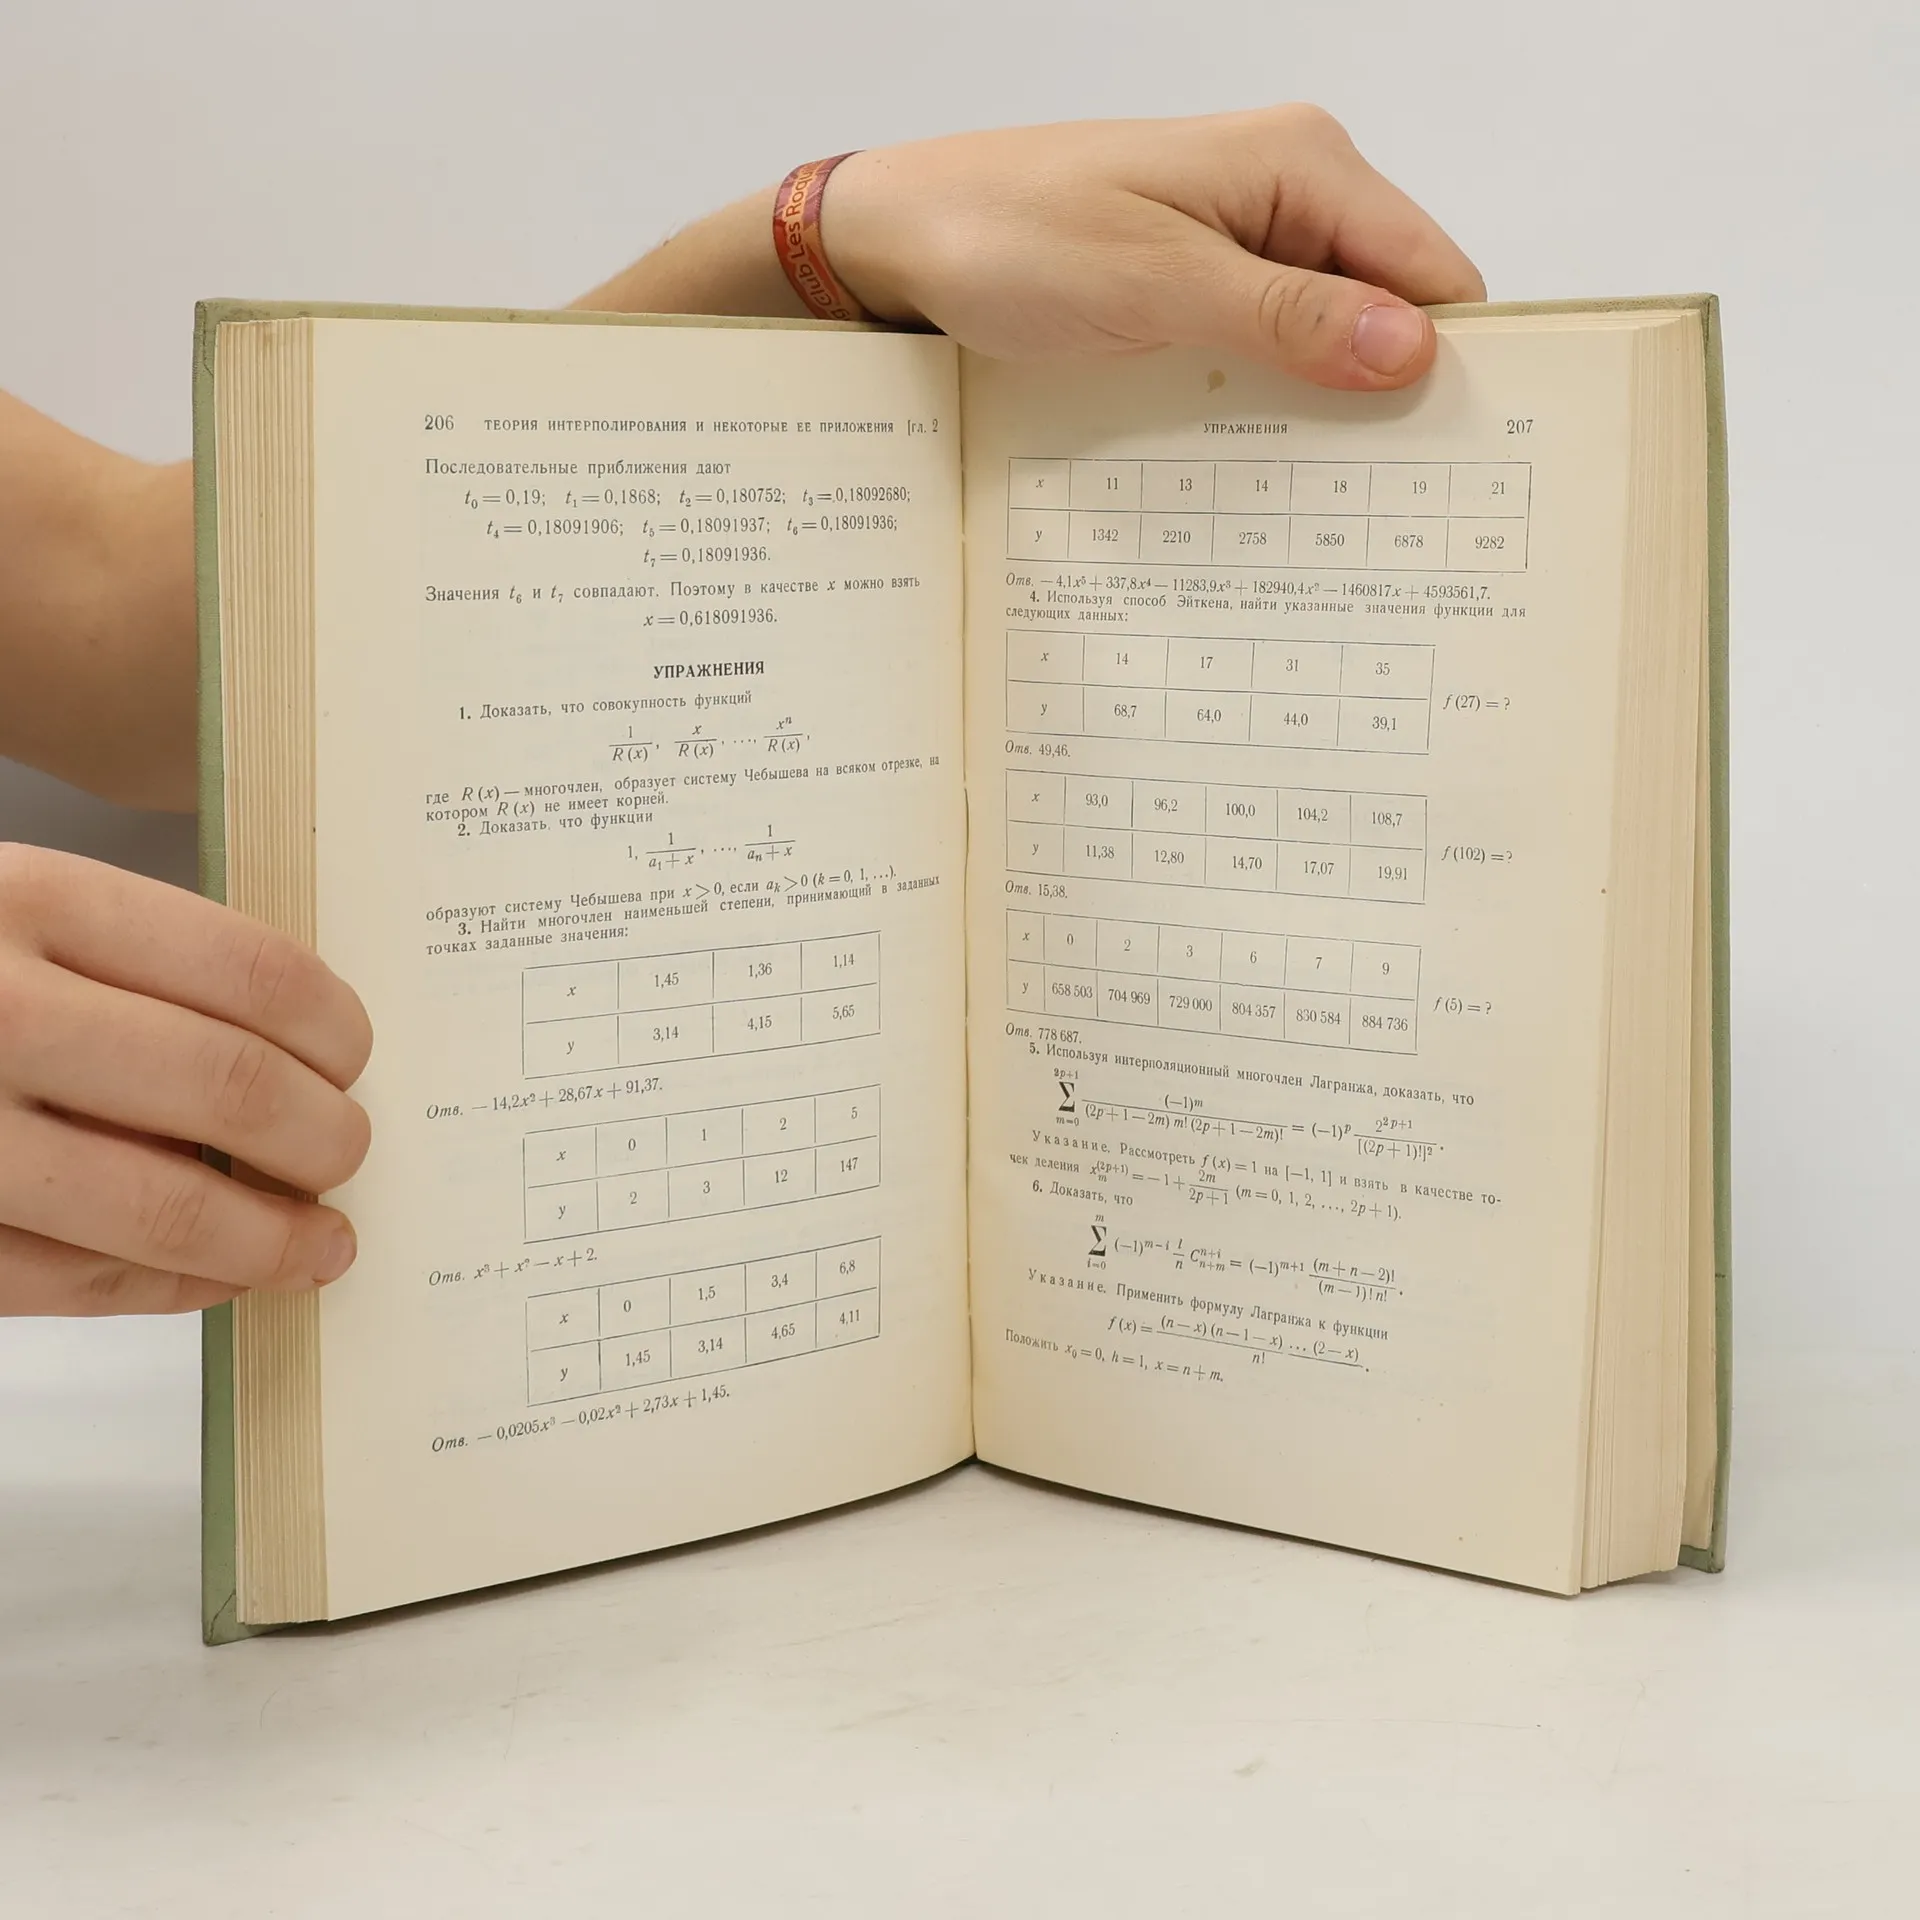 g Club Les Roqu
206 ТЕОРИЯ ИНТЕРПОЛИРОВАНИЯ И НЕКОТОРЫЕ ЕЕ ПРИЛОЖЕНИЯ [гл. 2
Последовательные приближения дают
t₀ = 0,19; t₁ = 0,1868; t₂ = 0,180752; t₃ = 0,18092680;
t₄ = 0,18091906; t₅ = 0,18091937; t₆ = 0,18091936;
t₇ = 0,18091936.
Значения t₆ и t₇ совпадают. Поэтому в качестве x можно взять
x = 0,618091936.
УПРАЖНЕНИЯ
1. Доказать, что совокупность функций
1/R(x), x/R(x), ..., xⁿ/R(x),
где R(x) — многочлен, образует систему Чебышева на всяком отрезке, на
котором R(x) не имеет корней.
2. Доказать, что функции
1, 1/(a₁ + x), ..., 1/(aₙ + x)
образуют систему Чебышева при x > 0, если aₖ > 0 (k = 0, 1, ...).
3. Найти многочлен наименьшей степени, принимающий в заданных
точках заданные значения:
x 1,45 1,36 1,14
y 3,14 4,15 5,65
Отв. — 14,2x² + 28,67x + 91,37.
x 0 1 2 5
y 2 3 12 147
Отв. x³ + x² — x + 2.
x 0 1,5 3,4 6,8
y 1,45 3,14 4,65 4,11
Отв. — 0,0205x³ — 0,02x² + 2,73x + 1,45.
УПРАЖНЕНИЯ 207
x 11 13 14 18 19 21
y 1342 2210 2758 5850 6878 9282
Отв. — 4,1x⁵ + 337,8x⁴ — 11283,9x³ + 182940,4x² — 1460817x + 4593561,7.
4. Используя способ Эйткена, найти указанные значения функции для
следующих данных:
x 14 17 31 35
y 68,7 64,0 44,0 39,1
f (27) = ?
Отв. 49,46.
x 93,0 96,2 100,0 104,2 108,7
y 11,38 12,80 14,70 17,07 19,91
f (102) = ?
Отв. 15,38.
x 0 2 3 6 7 9
y 658 503 704 969 729 000 804 357 830 584 884 736
f (5) = ?
Отв. 778 687.
5. Используя интерполяционный многочлен Лагранжа, доказать, что
2p+1 ∑ m=0 (—1)ᵐ / ((2p + 1 — 2m) m! (2p + 1 — 2m)!) = (—1)ᵖ 2²ᵖ⁺¹ / [(2p + 1)!]².
Указание. Рассмотреть f (x) = 1 на [—1, 1] и взять в качестве то-
чек деления xₘ⁽²ᵖ⁺¹⁾ = — 1 + 2m/(2p + 1) (m = 0, 1, 2, ..., 2p + 1).
6. Доказать, что
m ∑ i=0 (—1)ᵐ⁻ⁱ i/n Cₙ₊ₘⁿ⁺ⁱ = (—1)ᵐ⁺¹ (m + n — 2)! / ((m — 1)! n!).
Указание. Применить формулу Лагранжа к функции
f (x) = (n — x) (n — 1 — x) ... (2 — x) / n!.
Положить x₀ = 0, h = 1, x = n + m.